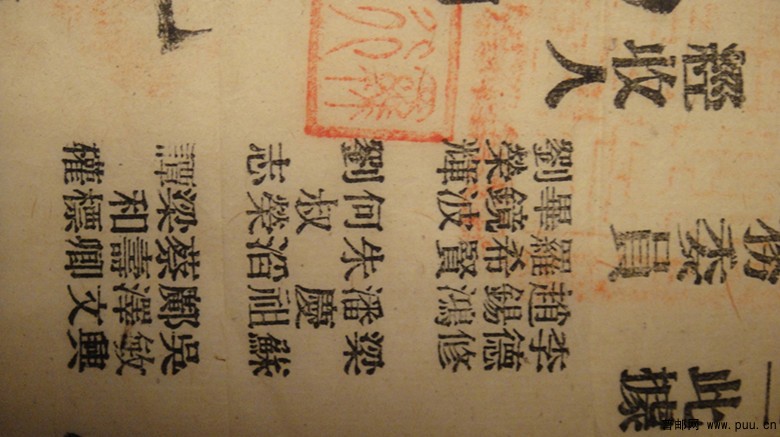 此據
務委員
李德修 梁蘇 吳敏興
趙錫鴻 潘慶祖 鄺澤文
羅希賢 朱滔 蔡壽卿
畢鏡波 何淑榮 梁和標
劉榮輝 劉志 譚權
經收人
www.puu.cn